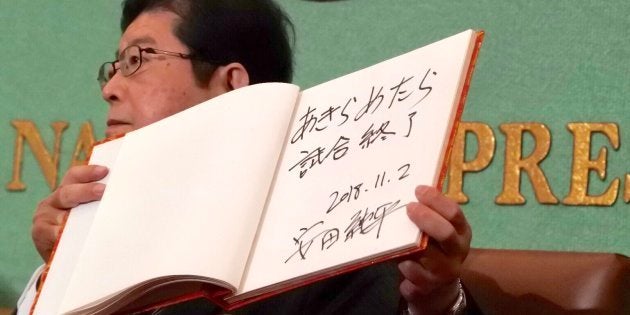 NA PRES
あきらめたら
試合終了
2018.11.2
安田純平